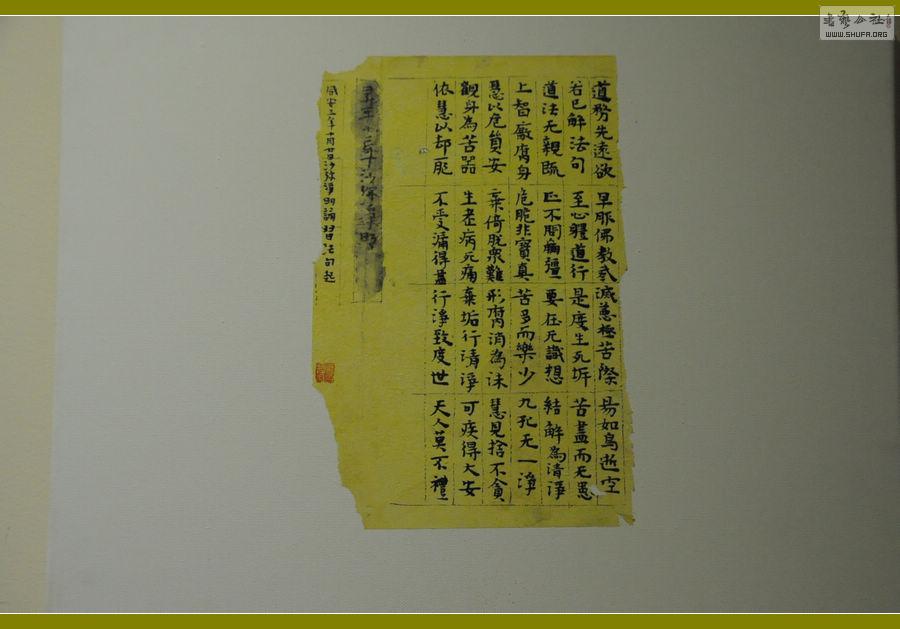 道務先遠欲 早服佛教戒 滅惡極苦際 易如鳥逝空
若已解法句 至心體道行 是度生死岸 苦盡而无患
道法无親疏 正不問羸彊 要在无識想 結解為清淨
上智厭腐身 危脆非實真 苦多而樂少 九孔无一淨
慧以危貿安 棄倚脫衆難 形腐消為沫 慧見捨不貪
觀身為苦器 生老病死痛 棄垢行清淨 可疾得大安
依慧以却耶 不受漏得盡 行淨致度世 天人莫不禮
沙弥淨明
咸安三年十月廿日沙弥淨明誦習法句起
書藝公社
WWW.SHUFA.ORG